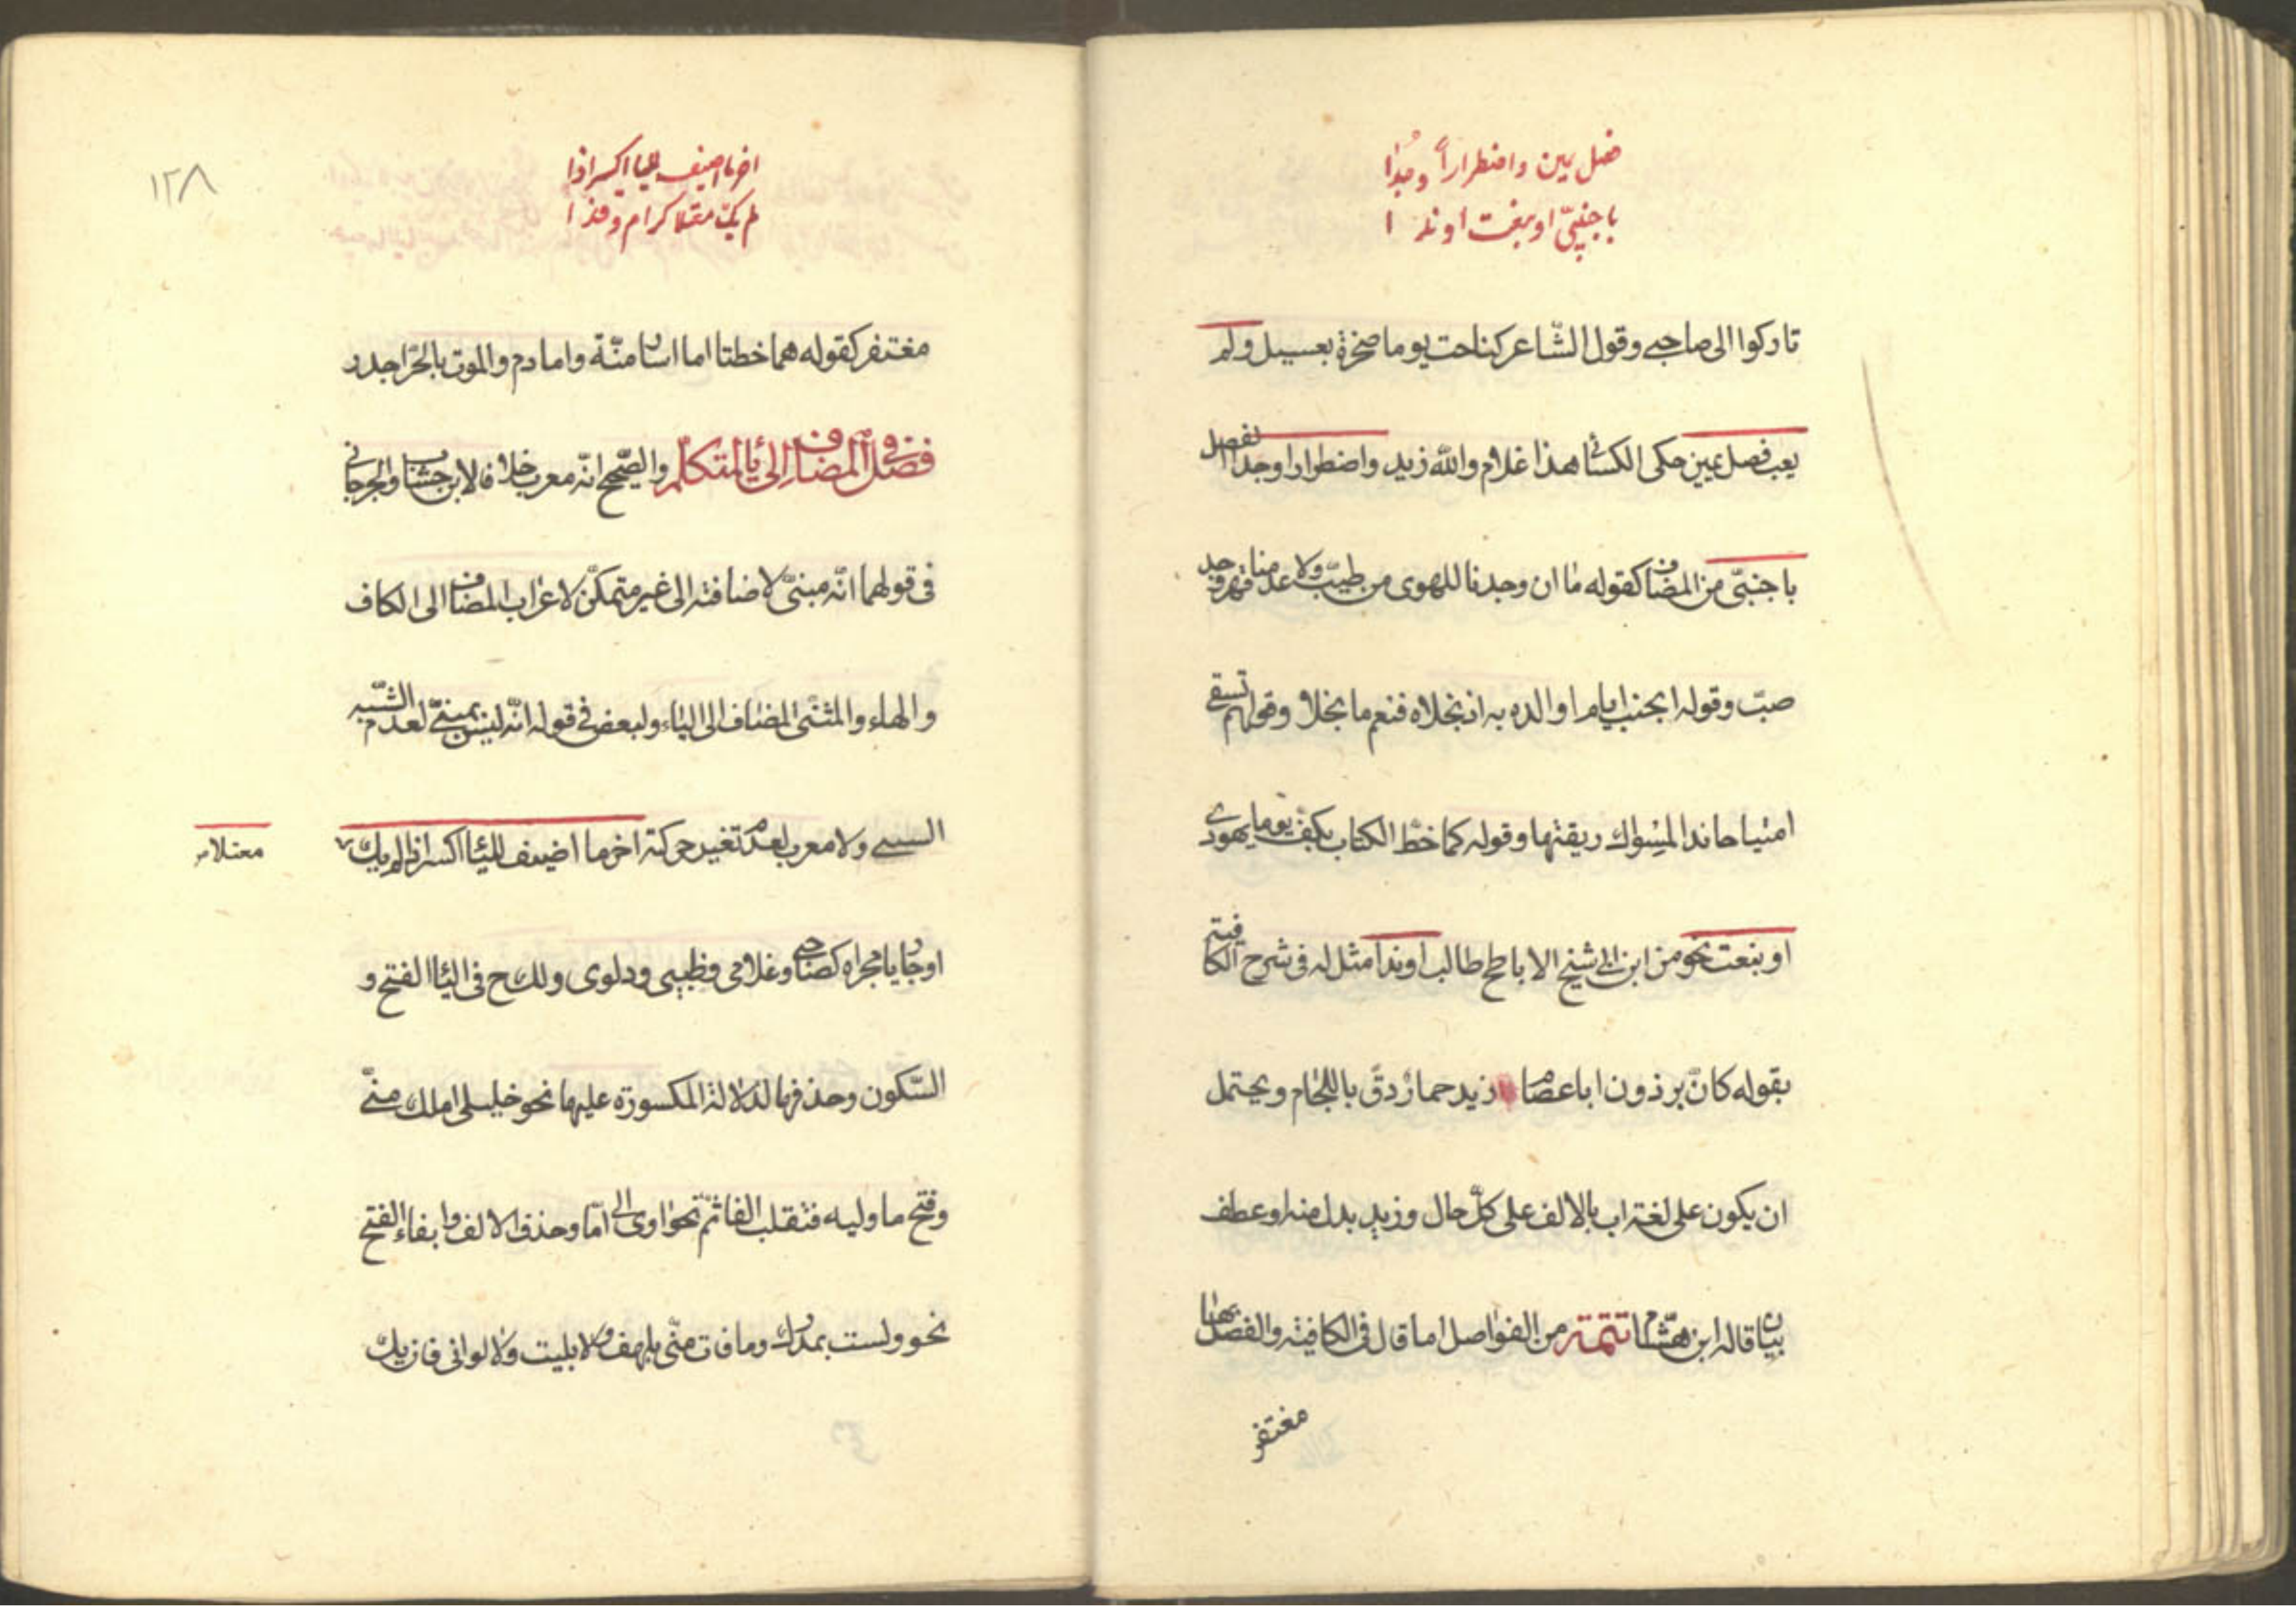 فصل يمين واضطراراً وجدا
باجنبيّ او بنعت او ندا
تاركوا الى صاحبى وقول الشّاعر كناحت يوما صخرة بعسيل ولم
يعب فصل يمين حكى الكسائى هذا غلام والله زيد واضطرارا وجدا الفصل
باجنبىّ من المضاف كقوله ما ان وجدنا للهوى من طبّ ولا عدمنا قهر وجد
صبّ وقوله انجب ايام والده به اذ نجلاه فنعم ما نجلا وقولهم تسقى
امتياحا ندا المسواك ريقتها وقوله كما خطّ الكتاب بكفّ يوما يهودى
او بنعت نحو من ابن ابى شيخ الاباطح طالب او ندا مثل له فى شرح الكافيته
بقوله كانّ برذون اباعصام زيد حمار دقّ باللجام ويحتمل
ان يكون على لغة اب بالالف على كلّ حال وزيد بدل منه او عطف
بيان قاله ابن هشام تتمة من الفواصل اما قال فى الكافية والفصل بها
مغتفر
١٢٨
اخر ما اضيف لليا اكسر اذا
لم يك معتلا كرام وقذا
مغتفر كقوله هما خطتا اما اسار ومنّة واما دم والموت بالحرّ اجدر
فصل فى المضاف الى ياء المتكلّم والصّحيح انّه معرب خلافا لابن خشاب والجرجانى
فى قولهما انّه مبنىّ لاضافته الى غير متمكّن لاعراب المضاف الى الكاف
والهاء والمثنّى المضاف الى الياء ولبعض فى قوله انّه ليس بمبنىّ لعدم الشّبه
السبب ولا معرب لعدم تغير حركته اخر ما اضيف لليا اكسر اذا لم يك
معتلا
او جاريا مجراه كصاحبى وغلامى وظبيى ودلوى ولك ح فى اليا الفتح و
السّكون وحذفها لدلالة المكسورة عليها نحو خليلى املك منّى
وفتح ما وليه فتقلب الفا ثمّ نحو اوى الى امّا وحذف الالف وابقاء الفتح
نحو ولست بمدرك وما فات منّى بلهف ولا بليت ولا لوانى فان يك